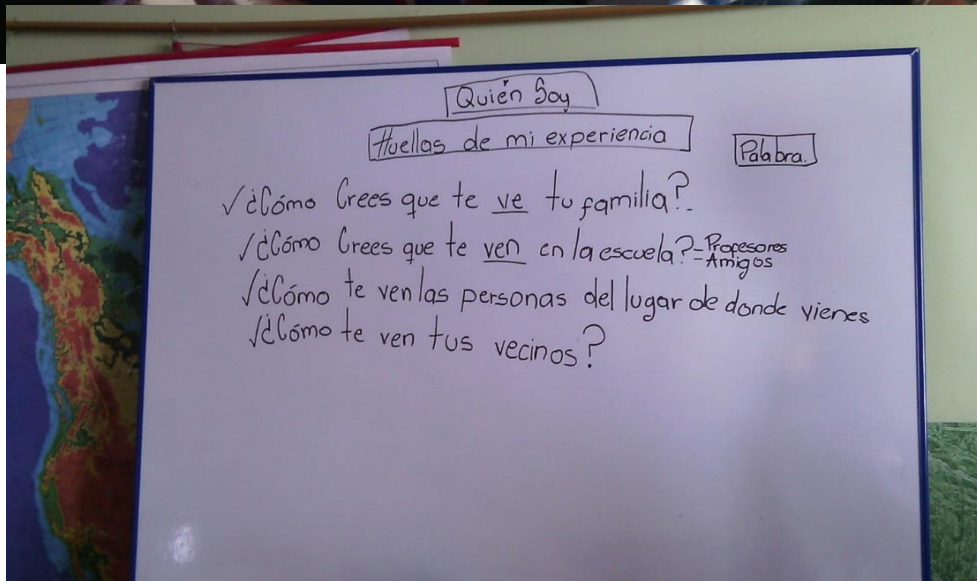 Quién Soy
Huellas de mi experiencia
Palabra.
✓¿Cómo Crees que te ve tu familia?
✓¿Cómo Crees que te ven en la escuela? - Profesores
- Amigos
✓¿Cómo te ven las personas del lugar de donde vienes
✓¿Cómo te ven tus vecinos?